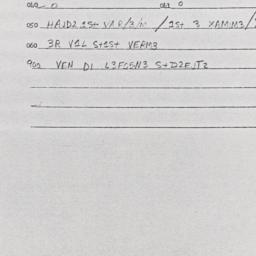 040 0 041 0
050 HAJD2 1S+ VAR/3/M /1S+ 3 XAMM3/
060 3R V1L S+1S+ VERM3
902 VEN DI L3FGSN3 S+D2EJT2